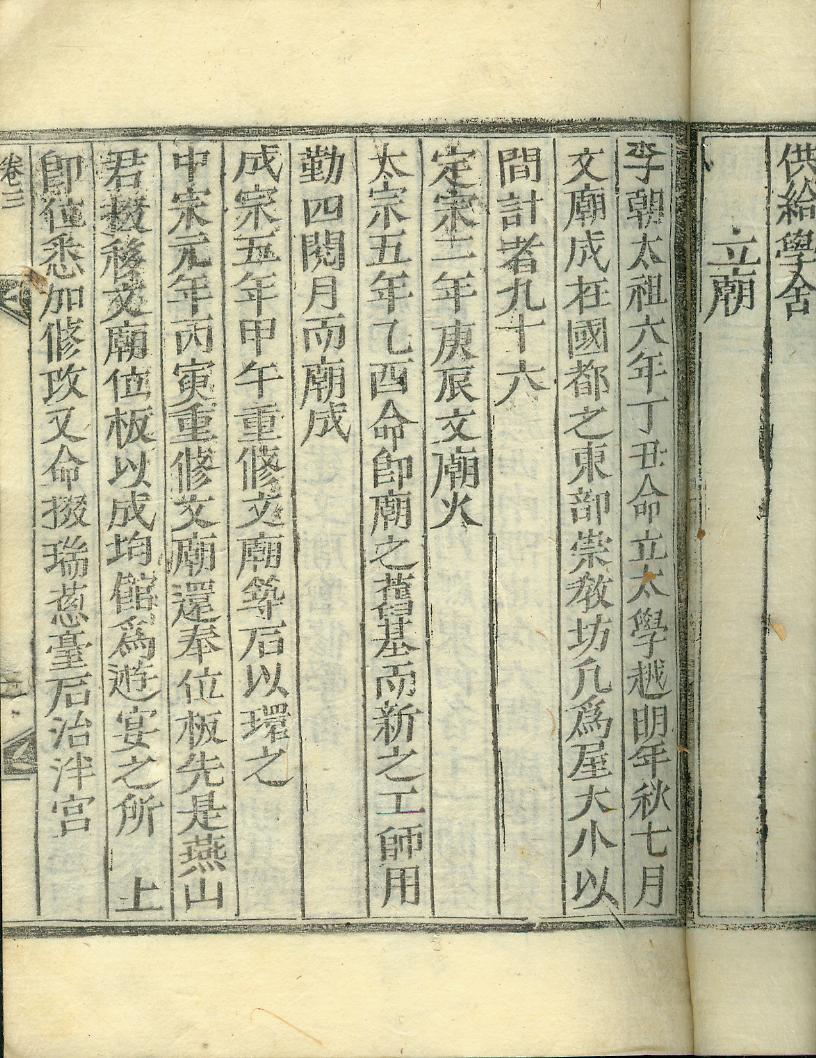 供給學舍
立廟
李朝太祖六年丁丑命立太學越明年秋七月
文廟成在國都之東部崇敎坊凡爲屋大小以
間計者九十六
定宗二年庚辰文廟火
太宗五年乙酉命卽廟之舊基而新之工師用
勤四閱月而廟成
成宗五年甲午重修文廟等石以環之
中宗元年丙寅重修文廟還奉位板先是燕山
君掇移文廟位板以成均館爲遊宴之所 上
卽位悉加修攻又命掇瑞葱臺石治泮宮
卷三